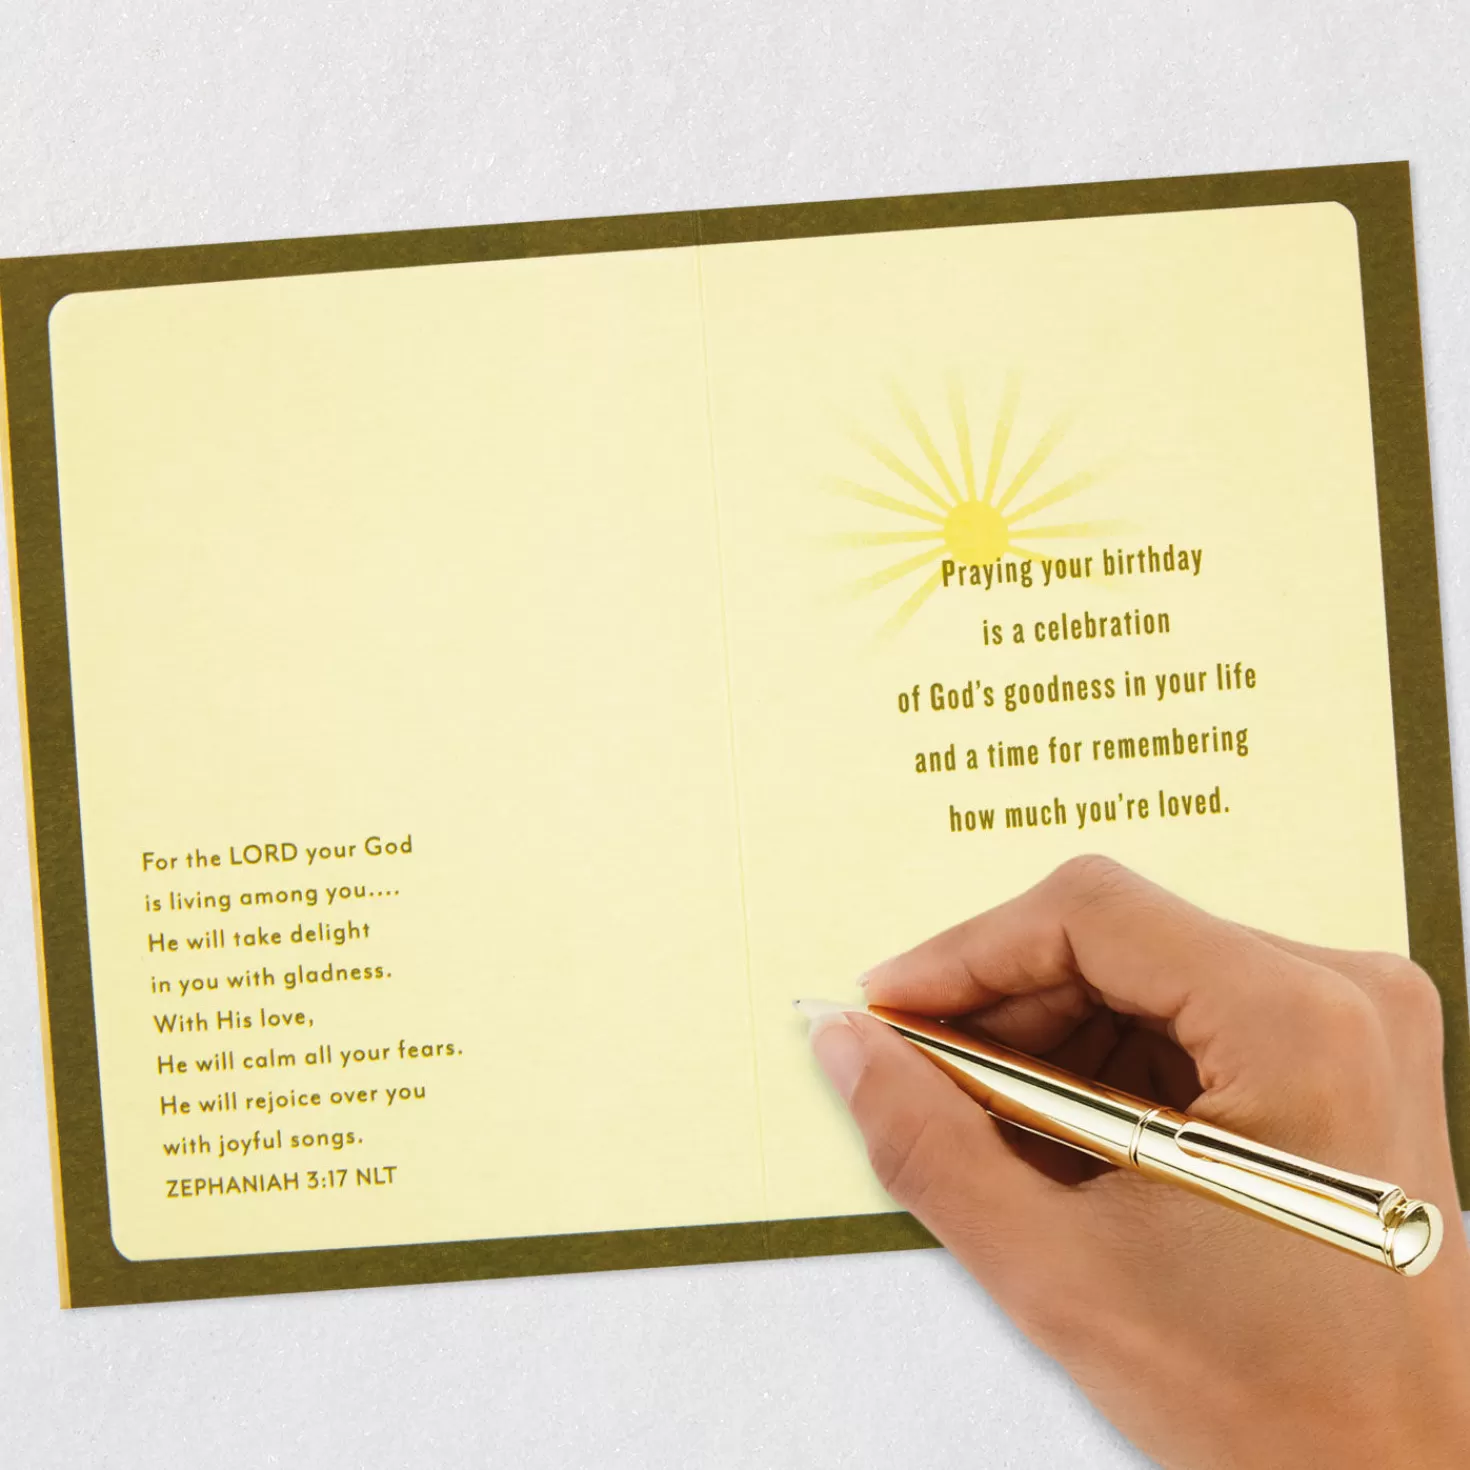 For the LORD your God
is living among you....
He will take delight
in you with gladness.
With His love,
He will calm all your fears.
He will rejoice over you
with joyful songs.
ZEPHANIAH 3:17 NLT
Praying your birthday
is a celebration
of God's goodness in your life
and a time for remembering
how much you're loved.